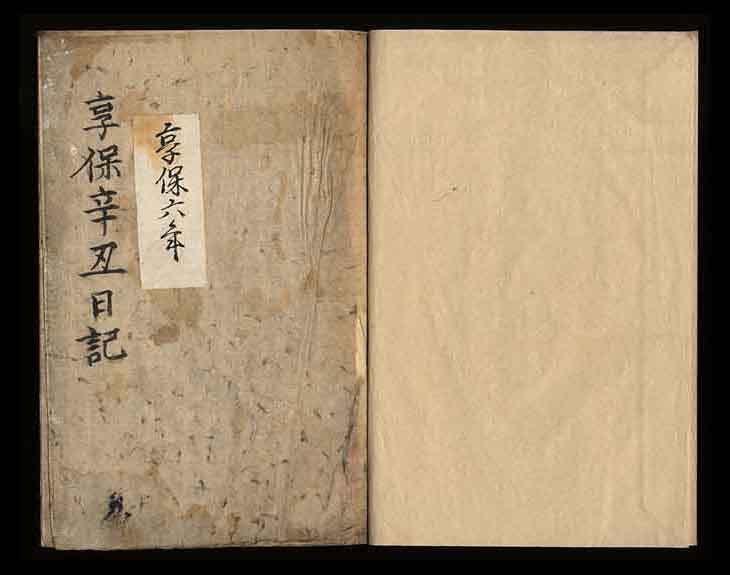 享保六年
享保辛丑日記